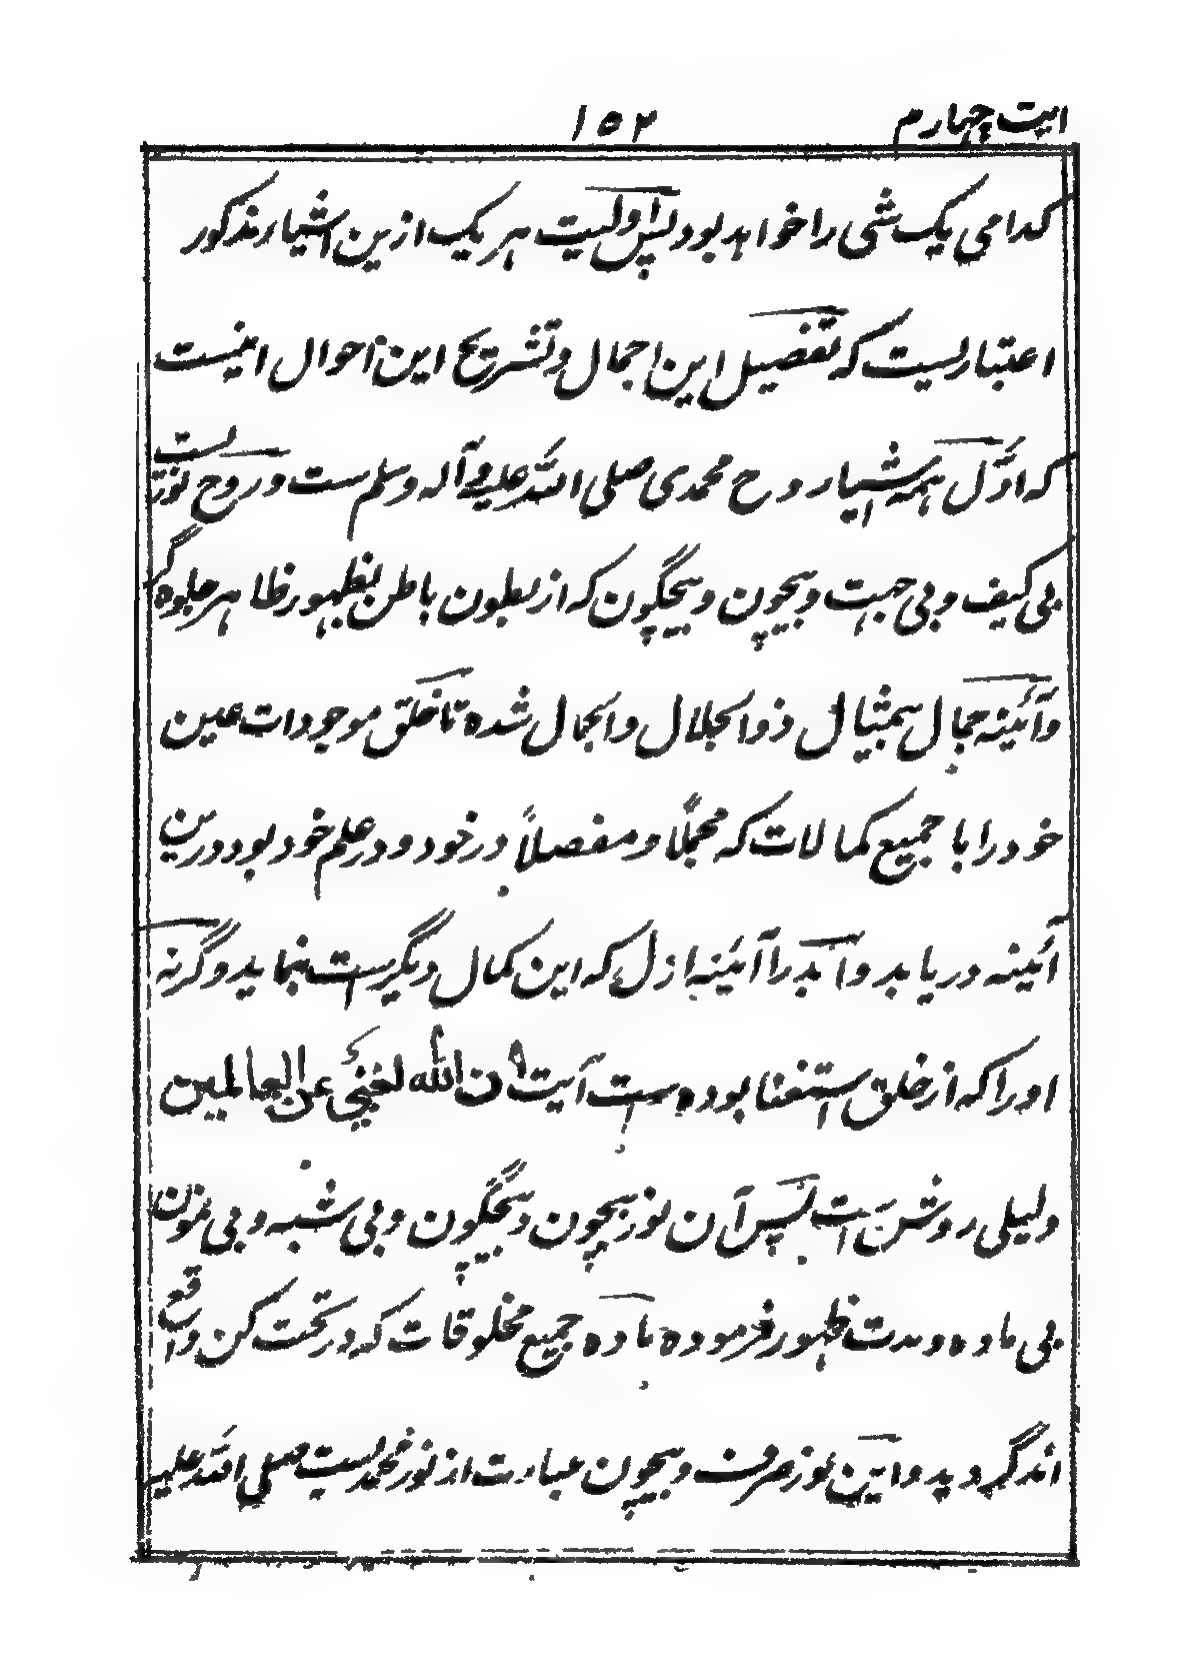 ایت چهارم ۱۵۲
کدامی یک شی را خواهد بود پس اولیت هر یک ازین اشیاء مذکور
اعتباریست که تفصیل این اجمال و تشریح این احوال اینست
که اوّل همه اشیاء روح محمدی صلی الله علیه وآله وسلم ست و روح نوریست
بی کیف و بی جهت و بیچون و بیچگون که از بطون باطن بظهور ظاهر جلوه گر
وآئینه جمال بیمثال ذوالجلال والجمال شده تا خلق موجودات عین
خود را با جمیع کمالات که مجملًا و مفصلاً در خود و در علم خود بود درین
آئینه دریابد و آنرا آئینه ازل که این کمال دیگرست بنماید و گرنه
اورا که از خلق استغنا بوده است آیت ان الله لغنیّ عن العالمین
دلیلی روشن است پس آن نور بیچون و بیچگون و بی شبه و بی نمون
بی ماده و مدت ظهور فرموده ماده جمیع مخلوقات که در تحت کن واقع
اند گردید و این نور صرف و بیچون عبارت از نور محمدیست صلی الله علیه